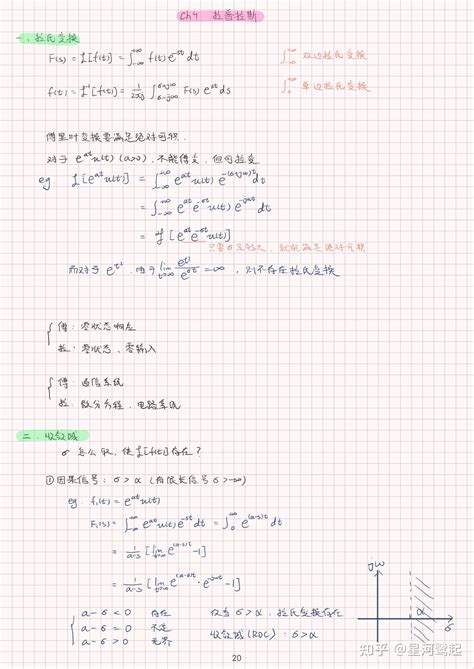 Ch4 拉普拉斯
一、拉氏变换
F(s) = ℒ[f(t)] = ∫_{-∞}^{+∞} f(t) e^{-st} dt
∫_{-∞}^{+∞} 双边拉氏变换
f(t) = ℒ^{-1}[F(s)] = 1/(2πj) ∫_{σ-j∞}^{σ+j∞} F(s) e^{st} ds
∫_{0}^{+∞} 单边拉氏变换
傅里叶变换要满足绝对可积.
对于 e^{at}u(t) (a>0), 不能傅变, 但可拉变
eg ℒ[e^{at}u(t)] = ∫_{-∞}^{+∞} e^{at}u(t) e^{-(σ+jω)t} dt
= ∫_{-∞}^{+∞} e^{at} e^{-σt} u(t) e^{-jωt} dt
= ℱ[e^{at} e^{-σt} u(t)]
只要σ足够大, 就能满足绝对可积
而对于 e^{t²}, 由于 lim_{t→∞} e^{t²}/e^{σt} = ∞, 则不存在拉氏变换
傅: 零状态响应
拉: 零状态、零输入
傅: 通信系统
拉: 微分方程、电路系统
二、收敛域
σ 怎么取, 使ℒ[f(t)]存在?
①因果信号: σ > α (有限长信号 σ > -∞)
eg. f₁(t) = e^{at}u(t)
F₁(s) = ∫_{-∞}^{+∞} e^{at}u(t) e^{-st} dt = ∫_{0}^{+∞} e^{(a-s)t} dt
= 1/(a-s) [lim_{t→∞} e^{(a-s)t} - 1]
= 1/(a-s) [lim_{t→∞} e^{(a-σ)t} · e^{-jωt} - 1]
a-σ < 0 存在
a-σ = 0 不定
a-σ > 0 无界
仅当 σ > α, 拉氏变换存在
收敛域 (ROC): σ > α
jω
α
σ
20
知乎 @星河鹭起